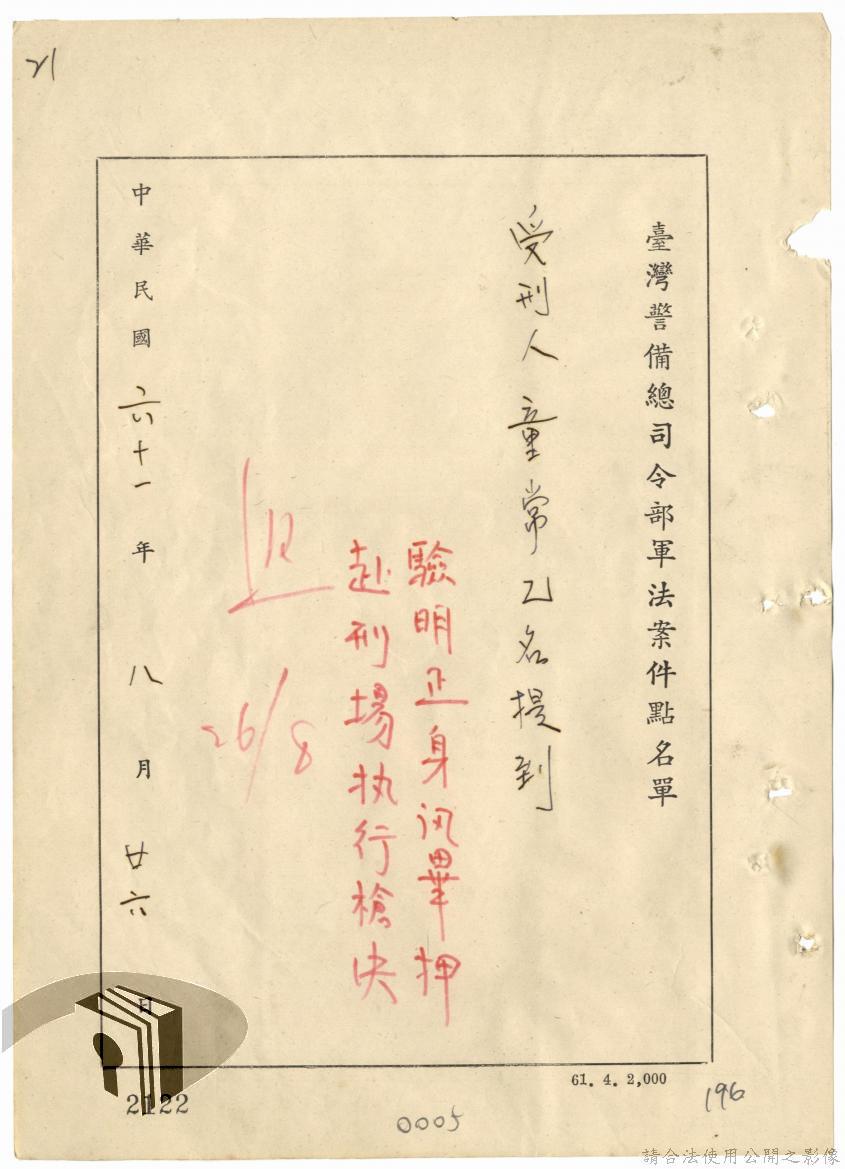 21
臺灣警備總司令部軍法案件點名單
受刑人童常乙名提到
驗明正身讯畢押
赴刑場执行槍決
26/8
中華民國六十一年八月廿六日
61. 4. 2,000
196
2122
0005
請合法使用公開之影像